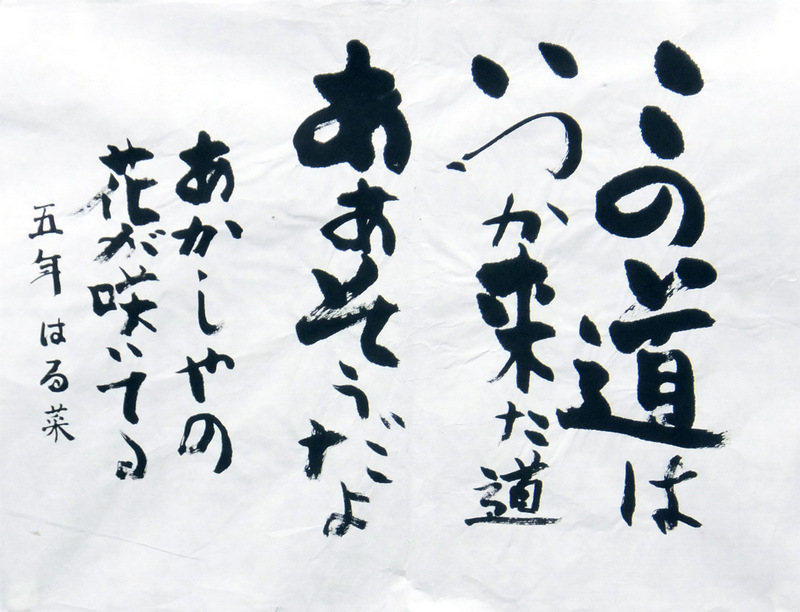 この道は
いつか来た道
ああそうだよ
あかしやの
花が咲いてる
五年 はる菜